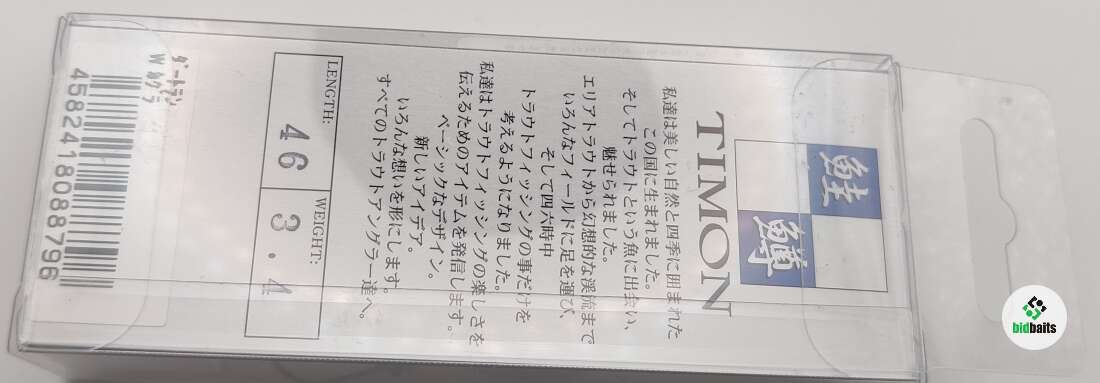 鮭
鱒
TIMON
私達は美しい自然と四季に囲まれた
この国に生まれました。
そしてトラウトという魚に出会い、
魅せられました。
エリアトラウトから幻想的な渓流まで
いろんなフィールドに足を運び、
そして四六時中
トラウトフィッシングの事だけを
考えるようになりました。
私達はトラウトフィッシングの楽しさを
伝えるためのアイテムを発信します。
ベーシックなデザイン。
新しいアイデア。
いろんな想いを形にします。
すべてのトラウトアングラー達へ。
LENGTH: WEIGHT:
46 3.4
W
4582418088796
bidbaits